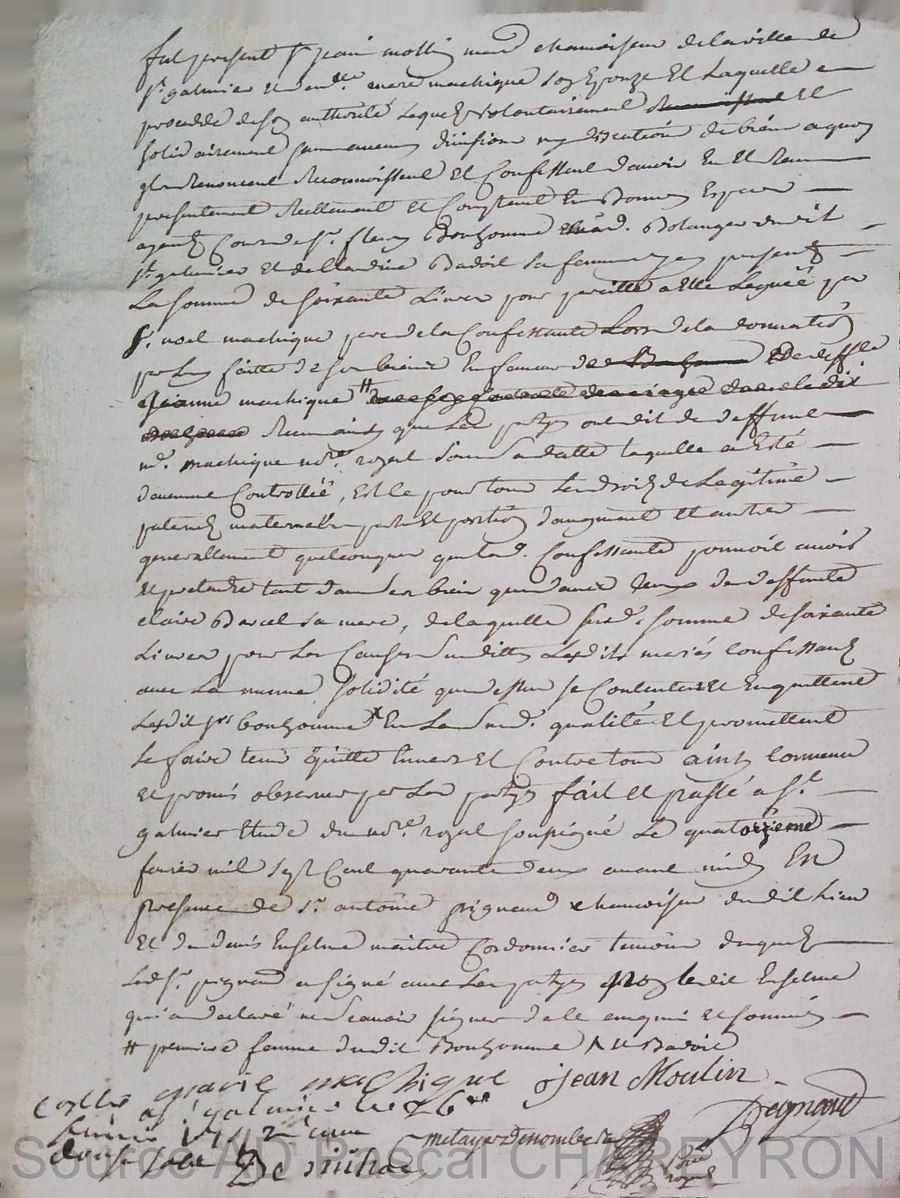 fut present Sr jean mollin md chamoiseur de la ville de
St galmier et md marie machique son Epouze Et Laquelle
procedde de son authorité Lequels volontairement Et
solidairement sans aucune division ny discution de biens a quoy
ils Renoncent Reconnoissent Et Confessent d'avoir Eu Et Receu
presentement Reellement Et Comptant En Bonnes Especes
ayant Cours de Sr fleury Bonhomme md. Bolanger dudit
St galmier Et de Badoil sa femme present
La somme de soixante Livres pour pareille a Elle Leguée par
Sr. noel machique pere de la Confessante Lors de la donnation
par Luy faitte de ses biens En faveur de deffte
jeanne machique #
Recue ainsy que Les partyes ont dit de deffunt
me. machique nore. royal sous sa datte laquelle a Esté
duement Controllée, Est ce pour tous Les droits de Legitime
paternels maternels part Et portion d'augment Et autres
generallement quelconques que lad. Confessante pouvoit avoir
Et pretendre tant dans Les biens que dans Ceux de deffunte
claire Barcel sa mere, de laquelle susd. somme de soixante
Livres pour Les Causes susdittes Lesdits mariés Confessants
avec La meme solidité que dessus se Contentent Et En quittent
Lesdit Srs bonhomme x En La susd. qualité Et promettent
Le faire tenir quitte Envers Et Contre tous ainsy Convenu
Et promis observer par Les partyes fait et passé a St
galmier Etude du nore. royal soussigné Le quatorzieme
fevrier mil sept Cent quarante deux avant midy En
presence de Sr. antoine pignaud chamoiseur dudit Lieu
Et de denis Enselme maitre Cordonnier temoins desquels
Led Sr. pignaud a signé avec Les partyes non ledit Enselme
qui a declaré ne Scavoir signer de ce enquis Et sommés
# premiere femme dudit Bonhomme x Et Badoil
marie machique jean Moulin
Collé a St galmier le 26
fevrier 1742 reçu
douze sols
De
Source AD Pascal CHAREYRON